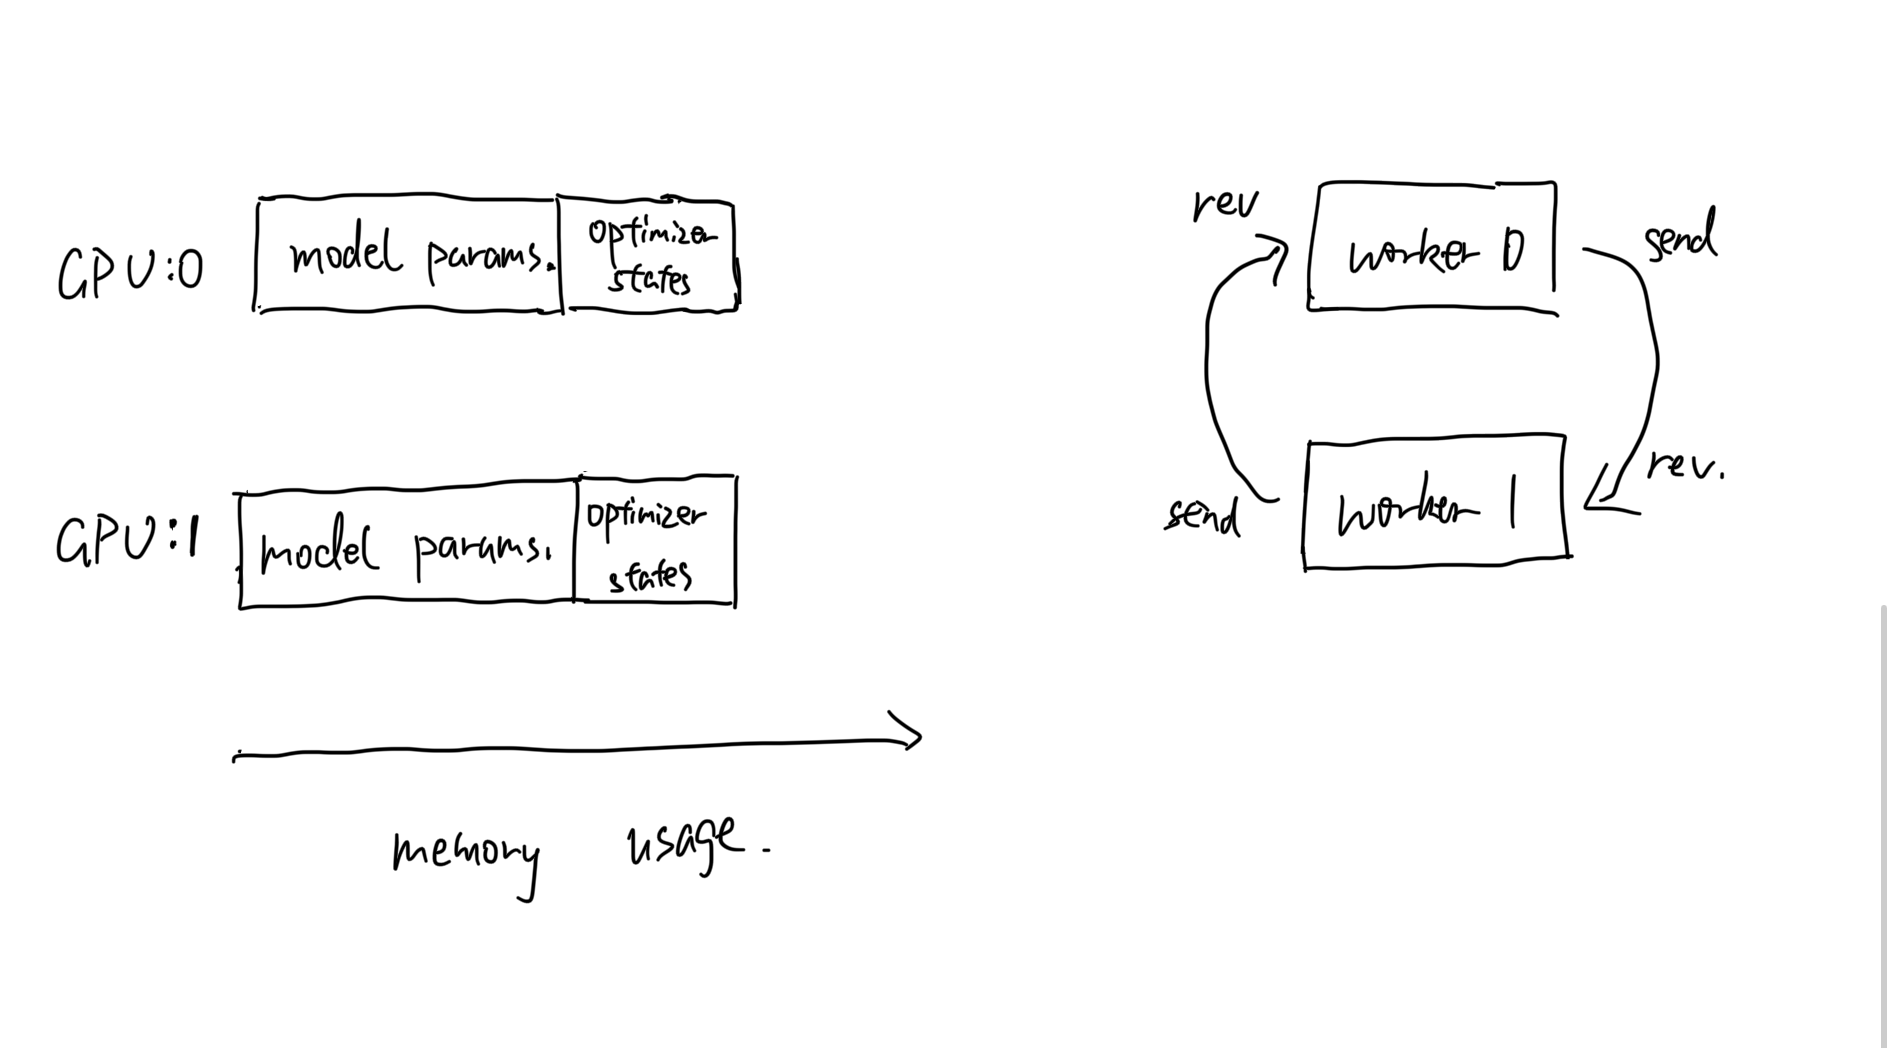 GPU:0
model params.
optimizer
states
GPU:1
model params.
optimizer
states
memory usage.
rev
worker 0
send
send
worker 1
rev.